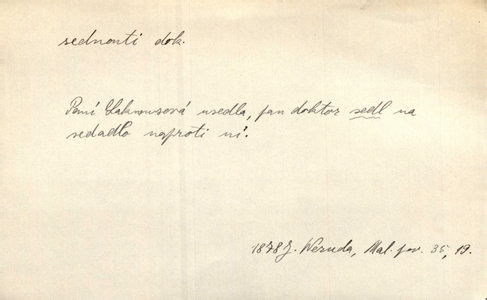 sednouti dok.
Paní Lakmusová usedla, pan doktor sedl na
sedadlo naproti ní.
1878 J. Neruda, Mal. pov. 35, 19.